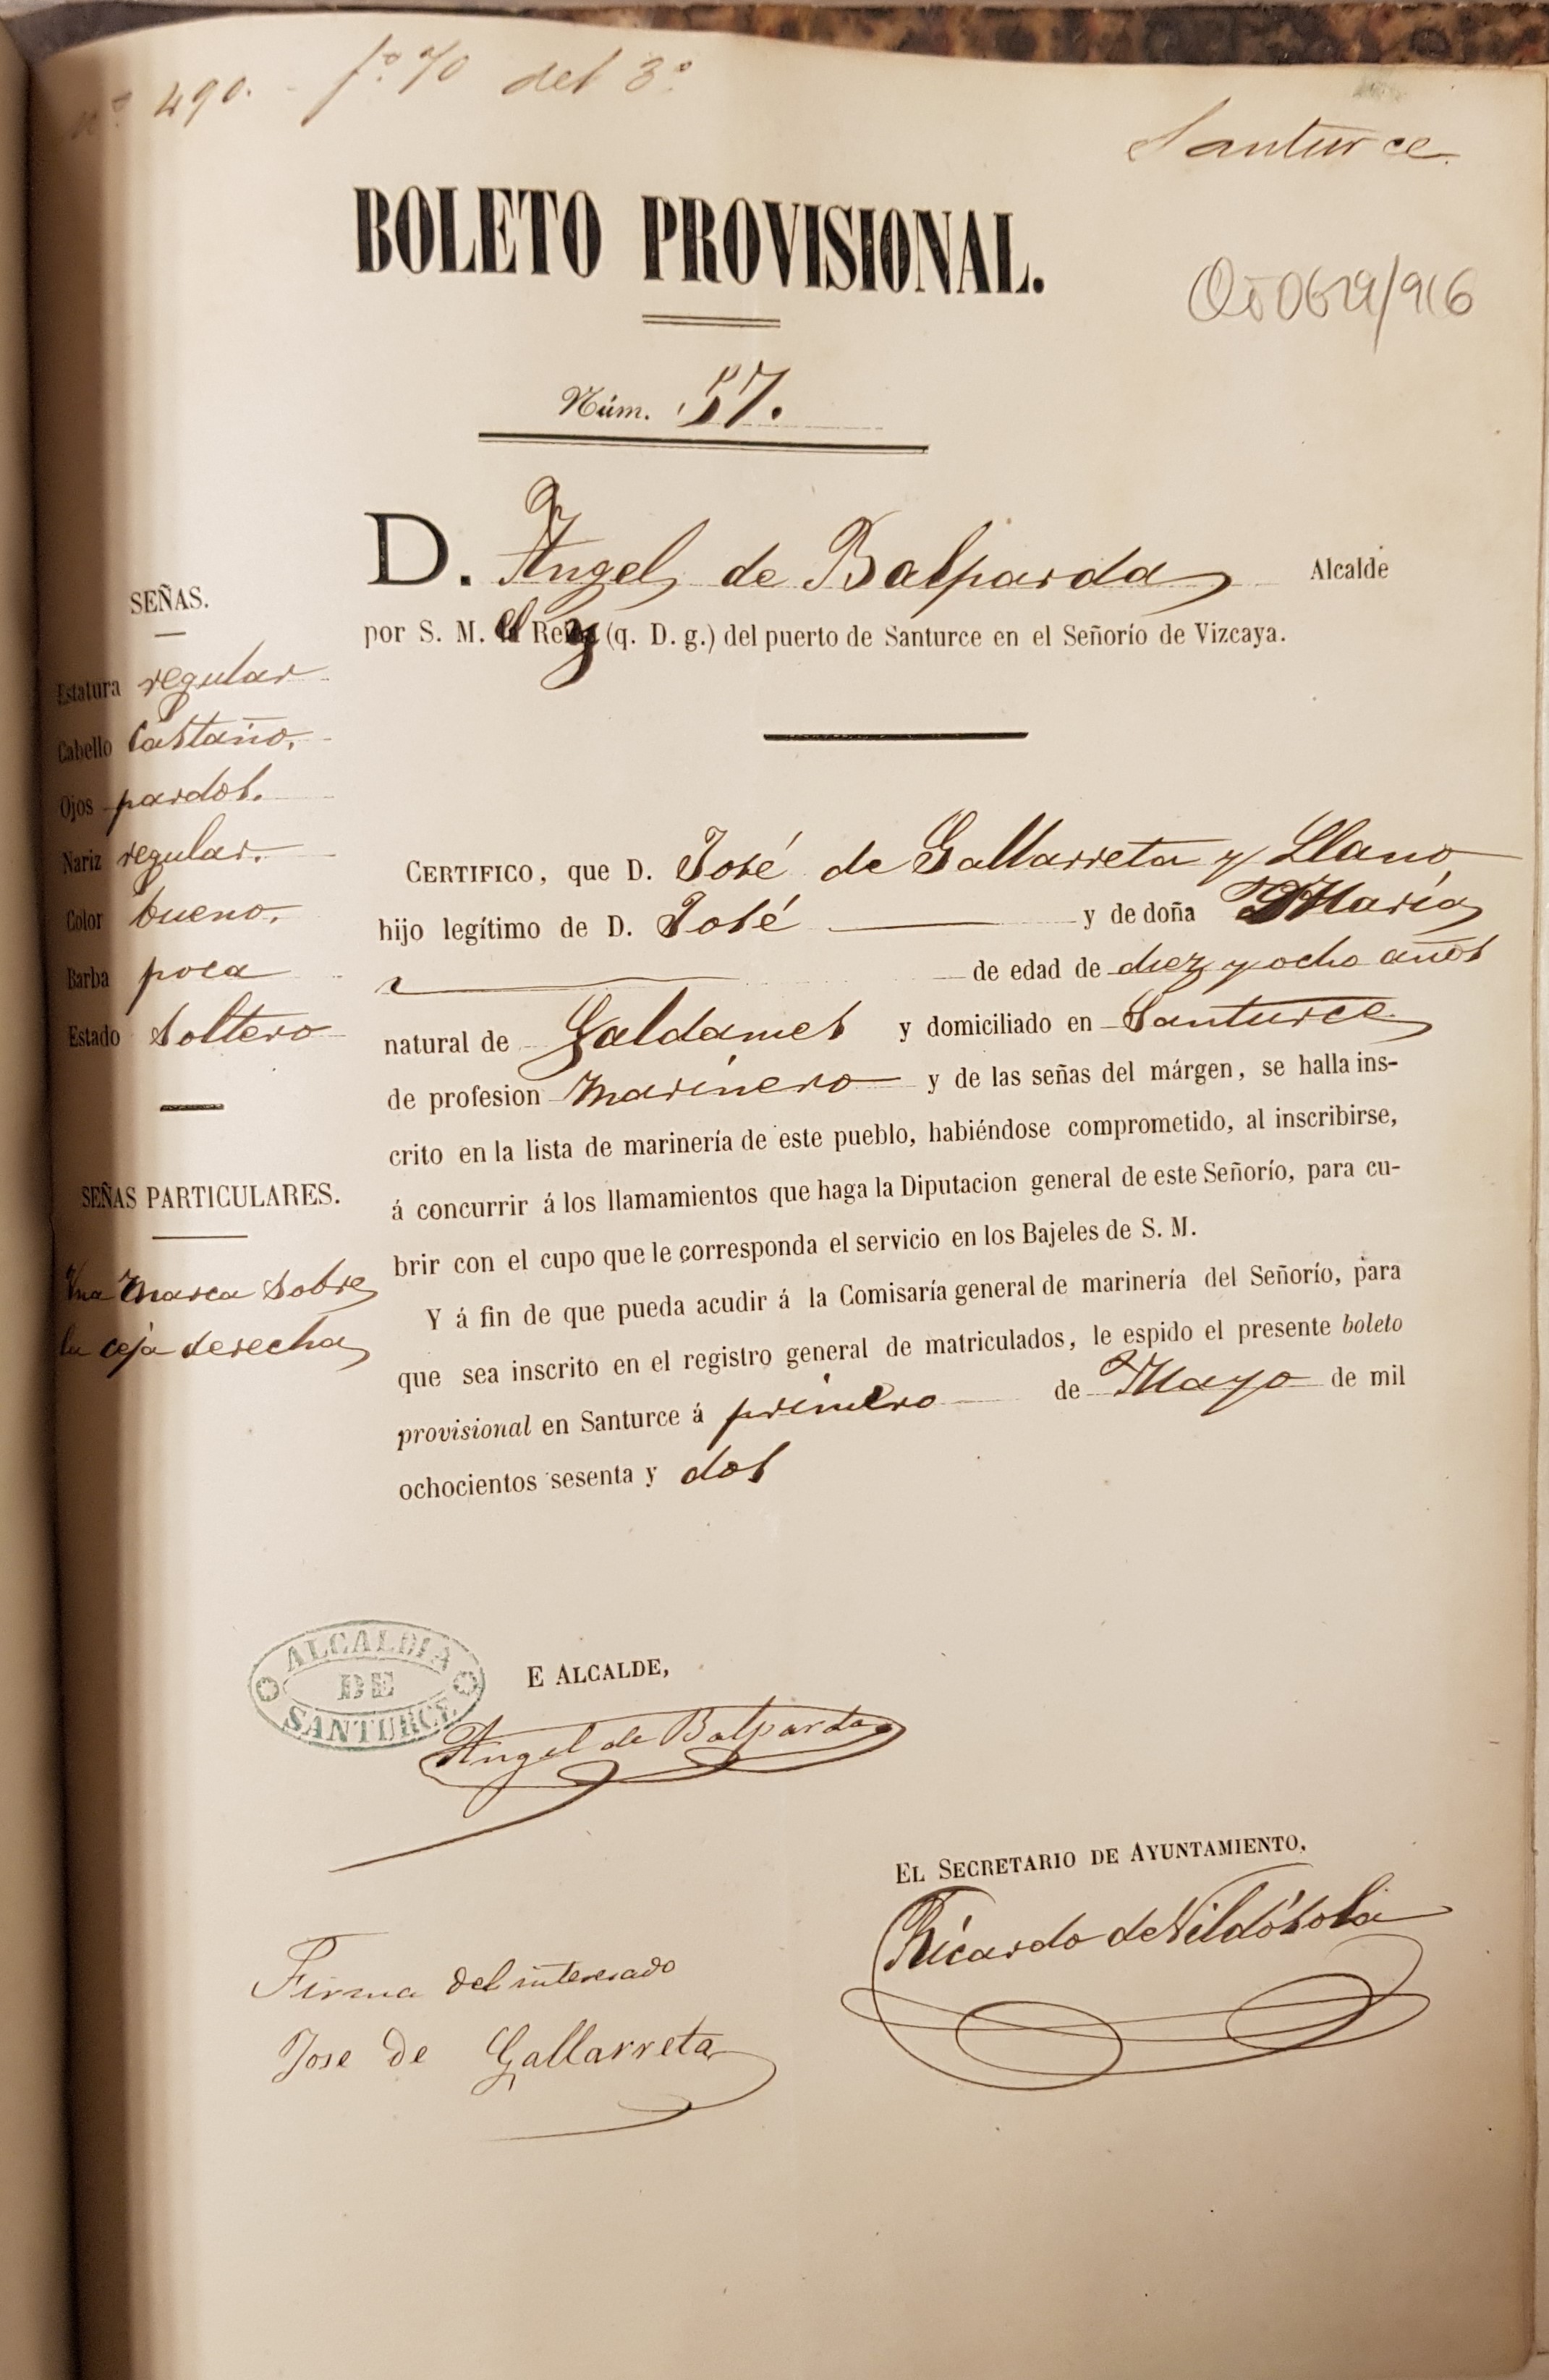 nº 490. fº 70 del 3º
Santurce.
BOLETO PROVISIONAL.
Núm. 57.
D. Angel de Balparda Alcalde
por S. M. el Rey (q. D. g.) del puerto de Santurce en el Señorío de Vizcaya.
SEÑAS.
Estatura regular
Cabello Castaño.
Ojos pardos.
Nariz regular.
Color bueno.
Barba poca
Estado Soltero
SEÑAS PARTICULARES.
Una marca sobre
la ceja derecha
CERTIFICO, que D. José de Gallarreta y Llano
hijo legítimo de D. José y de doña María
de edad de diez y ocho años
natural de Galdames y domiciliado en Santurce
de profesion marinero y de las señas del márgen, se halla ins-
crito en la lista de marinería de este pueblo, habiéndose comprometido, al inscribirse,
á concurrir á los llamamientos que haga la Diputacion general de este Señorío, para cu-
brir con el cupo que le corresponda el servicio en los Bajeles de S. M.
Y á fin de que pueda acudir á la Comisaría general de marinería del Señorío, para
que sea inscrito en el registro general de matriculados, le espido el presente boleto
provisional en Santurce á primero de Mayo de mil
ochocientos sesenta y dos
ALCALDIA
DE
SANTURCE
E ALCALDE,
Angel de Balparda
EL SECRETARIO DE AYUNTAMIENTO,
Ricardo de Vildósola
Firma del interesado
Jose de Gallarreta